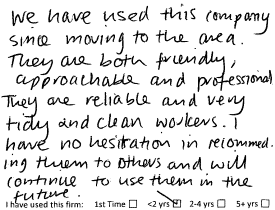 We have used this company
since moving to the area.
They are both friendly,
approachable and professional
They are reliable and very
tidy and clean workers. I
have no hesitation in recommend.
ing them to others and will
continue to use them in the
future.
I have used this firm: 1st Time ☐ <2 yrs ☒ 2-4 yrs ☐ 5+ yrs ☐